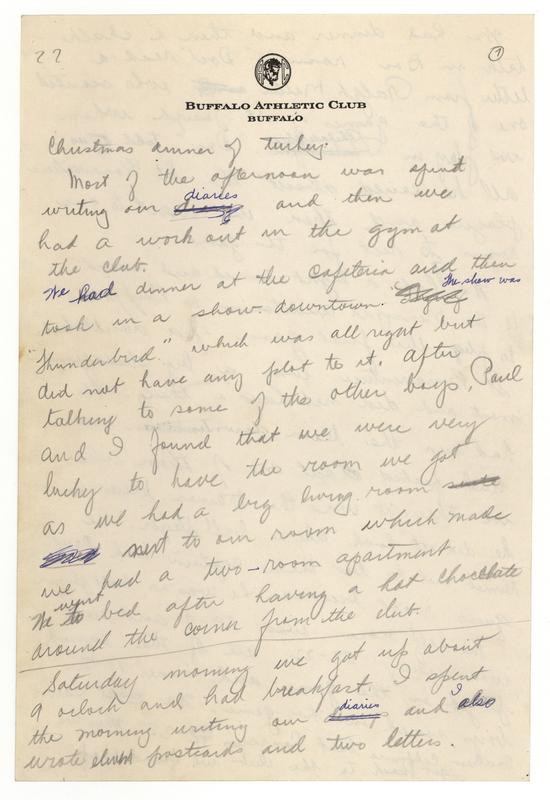 22
1
BUFFALO ATHLETIC CLUB
BUFFALO
Christmas dinner of turkey.
Most of the afternoon was spent
writing our diaries and then we
had a work out in the gym at
the club.
We had dinner at the cafeteria and then
took in a show downtown. The show was
"Thunderbird." which was all right but
did not have any plot to it. After
talking to some of the other boys, Paul
and I found that we were very
lucky to have the room we got
as we had a big living room
next to our room which made
we had a two-room apartment
We went to bed after having a hot chocolate
around the corner from the club.
Saturday morning we got up about
9 oclock and had breakfast. I spent
the morning writing our diaries and I also
wrote eleven postcards and two letters.